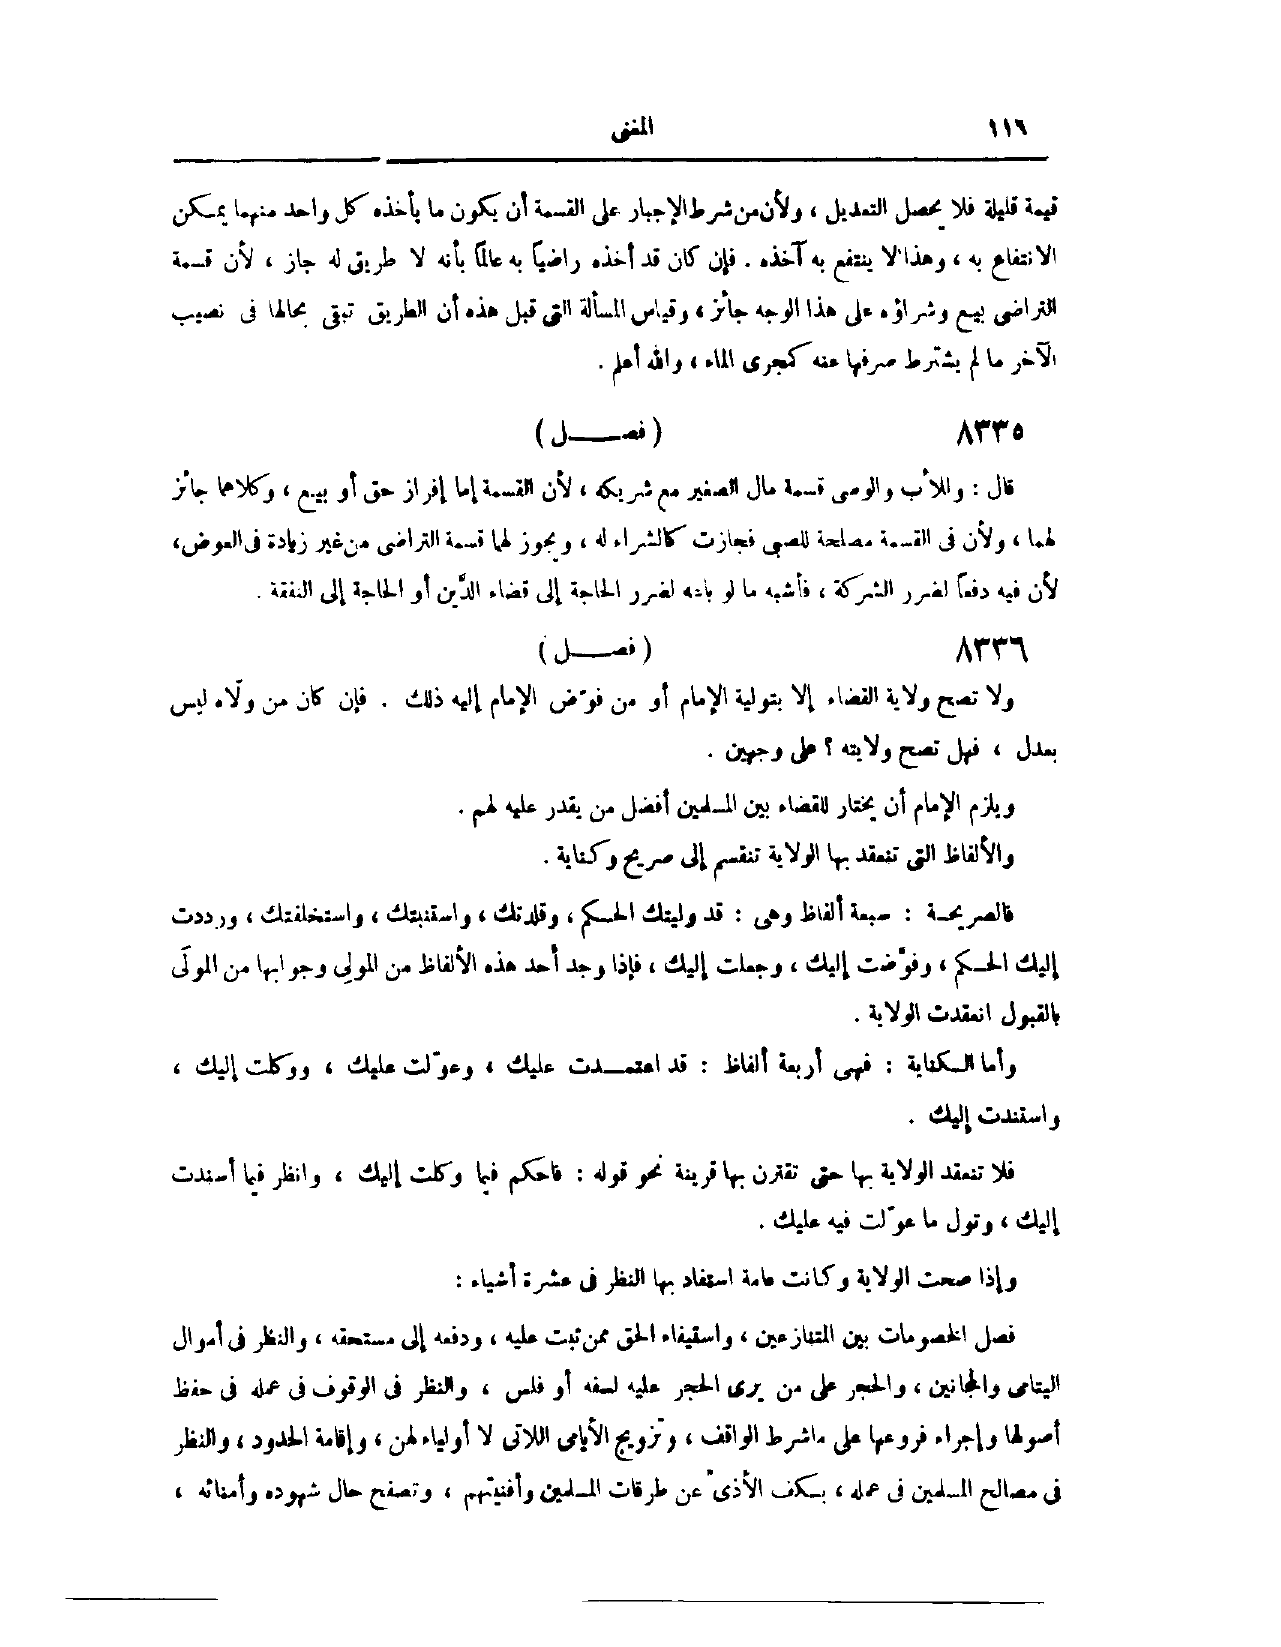 ١١٦ المغنى
قيمة قليلة فلا يحصل التعديل ، ولأن من شرط الإجبار على القسمة أن يكون ما يأخذه كل واحد منهما يمكن
الانتفاع به ، وهذا لا ينتفع به آخذه . فإن كان قد أخذه راضياً به عالماً بأنه لا طريق له جاز ، لأن قسمة
التراضى بيع وشراؤه على هذا الوجه جائز ، وقياس المسألة التى قبل هذه أن الطريق تبقى بحالها فى نصيب
الآخر ما لم يشترط صرفها عنه كمجرى الماء ، والله أعلم .
٨٣٣٥ ( فصـــل )
قال : وللأب والوصى قسمة مال الصغير مع شريكه ، لأن القسمة إما إفراز حق أو بيع ، وكلاهما جائز
لهما ، ولأن فى القسمة مصلحة للصبى فجازت كالشراء له ، ويجوز لهما قسمة التراضى من غير زيادة فى العوض،
لأن فيه دفعاً لضرر الشركة ، فأشبه ما لو باعه لضرر الحاجة إلى قضاء الدَّين أو الحاجة إلى النفقة .
٨٣٣٦ ( فصـــل )
ولا تصح ولاية القضاء إلا بتولية الإمام أو من فوّض الإمام إليه ذلك . فإن كان من ولّاه ليس
بعدل ، فهل تصح ولايته ؟ على وجهين .
ويلزم الإمام أن يختار للقضاء بين المسلمين أفضل من يقدر عليه لهم .
والألفاظ التى تنعقد بها الولاية تنقسم إلى صريح وكناية .
فالصريحـة : سبعة ألفاظ وهى : قد وليتك الحـكم ، وقلدتك ، واستنبتك ، واستخلفتك ، ورددت
إليك الحـكم ، وفوّضت إليك ، وجعلت إليك ، فإذا وجد أحد هذه الألفاظ من المولِى وجوابها من المولَّى
بالقبول انعقدت الولاية .
وأما الـكناية : فهى أربعة ألفاظ : قد اعتمــدت عليك ، وعوّلت عليك ، ووكلت إليك ،
واستندت إليك .
فلا تنعقد الولاية بها حتى تقترن بها قرينة نحو قوله : فاحكم فيما وكلت إليك ، وانظر فيما أسندت
إليك ، وتول ما عوّلت فيه عليك .
وإذا صحت الولاية وكانت عامة استفاد بها النظر فى عشرة أشياء :
فصل الخصومات بين المتنازعين ، واستيفاء الحق ممن ثبت عليه ، ودفعه إلى مستحقه ، والنظر فى أموال
اليتامى والمجانين ، والحجر على من يرى الحجر عليه لسفه أو فلس ، والنظر فى الوقوف فى عمله فى حفظ
أصولها وإجراء فروعها على ما شرط الواقف ، وتزويج الأيامى اللاتى لا أولياء لهن ، وإقامة الحدود ، والنظر
فى مصالح المسلمين فى عمله ، بـكف الأذى عن طرقات المسلمين وأفنيتهم ، وتصفح حال شهوده وأمنائه ،